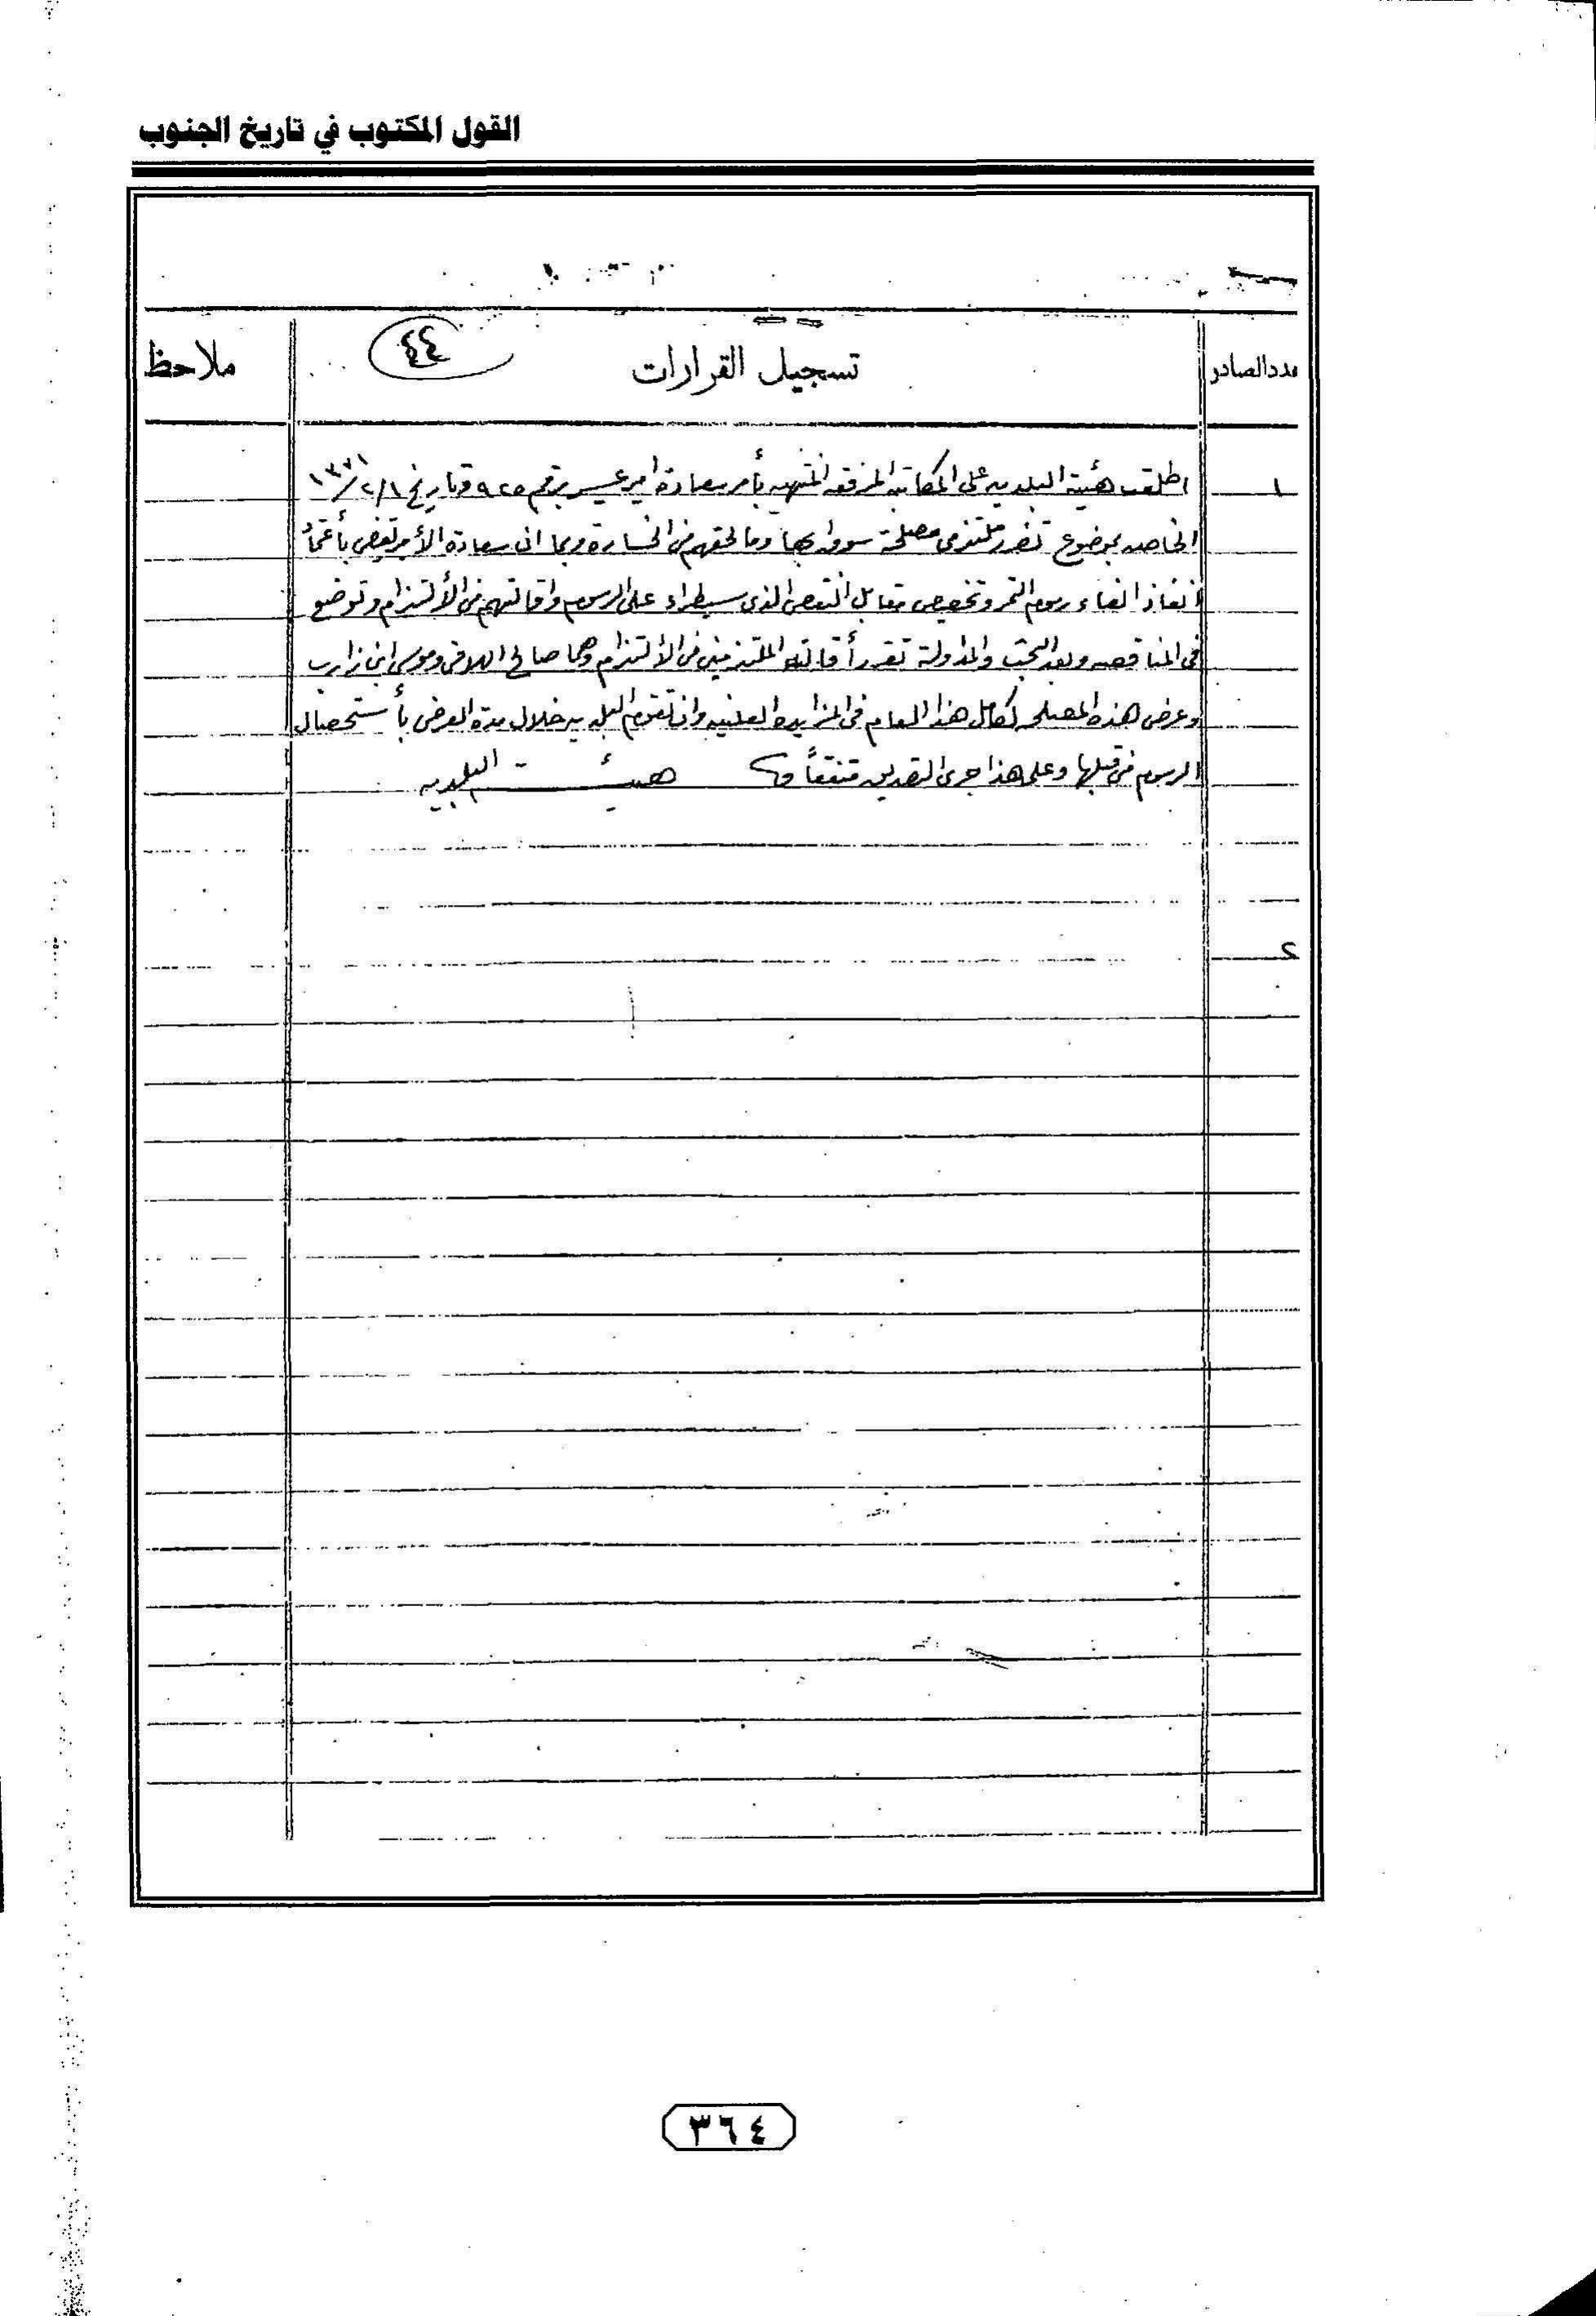 القول المكتوب في تاريخ الجنوب
عدد الصادر تسجيل القرارات ٤٤ ملاحظ
١ اطلعت هيئة البلديه على المكاتبه المرفقه المنتهيه بأمر سعادة امير عسير برقم ٩٢٥ وتاريخ ٢/١/ ١٣٧١
الخاصه بموضوع تضرر ملتزمي مصلحة سوق ابها وما لحقهم من الخسارة وبما ان سعادة الأمير يقضي بأعتماد
انفاذ الغاء رسوم التمر وتخفيض مقابل النقص الذى سيطراء على الرسوم واقالتهم من الألتزام وتوضع
في المناقصه وبعد البحث والمذولة تقرر أقالة الملتزمين من الألتزام وهما صالح اللافي وموسى ابن زارب
وعرض هذه المصلحه لكامل هذا العام في المزايده العلنيه وان تقوم البلديه خلال مدة العرض بأستحصال
الرسوم من قبلها وعلى هذا جرى التصديق متفقاً هيئة البلديه
٢
٣٦٤